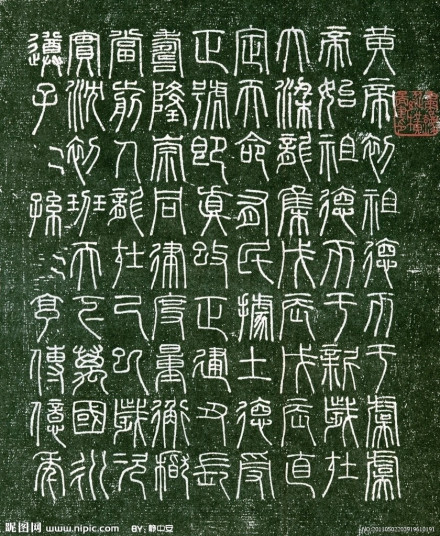 黄帝初祖德帀于虞虞
帝始祖德帀于新歲在
大梁龍集戊辰戊辰直
定天命有民據土德受
正號即真改正建丑長
壽隆崇同律度量衡稽
當前人龍在己巳歲次
實沈初班天下萬國永
遵子〻孫〻享傳億年
昵图网 www.nipic.com BY: 静中安